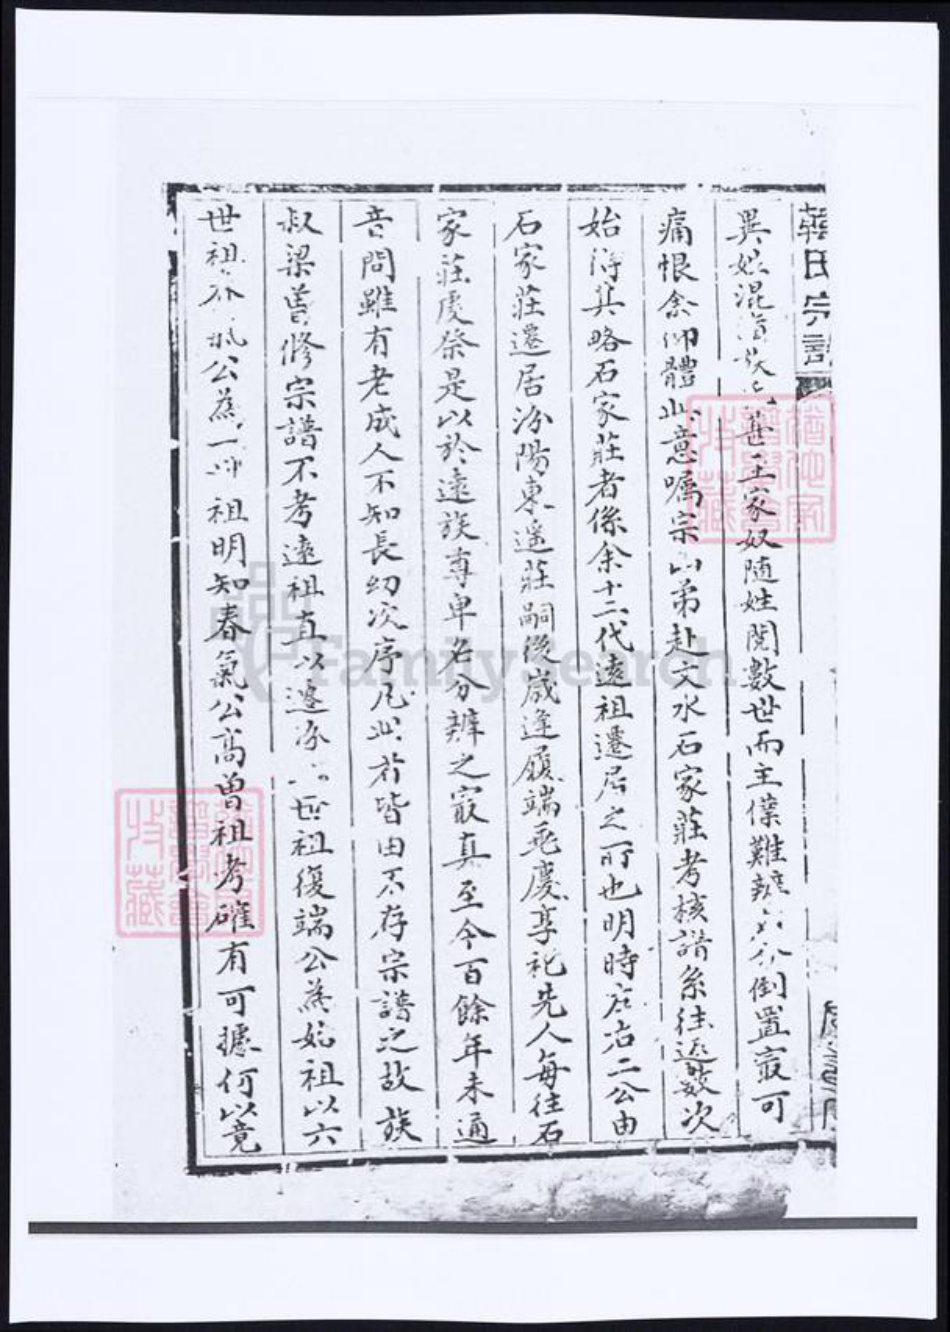 韓氏宗譜
異姓混 甚至家奴随姓閲數世而主僕難辨 倒置最可
痛恨余仰體此意囑宗 弟赴文水石家莊考核譜系往返數次
始得其略石家莊者係余十二代遠祖遷居之所也明時 右二公由
石家莊遷居汾陽東遥莊嗣後歲逢履端 慶享祀先人每往石
家莊 祭是以於遠族尊卑名分辨之最真至今百餘年未通
音問雖有老成人不知長幼次序凡此 皆由不存宗譜之故族
叔梁 曾修宗譜不考遠祖直以遷汾 世祖復端公為始祖以六
世祖 公為一 祖明知春氣公高曾祖考確有可據何以竟
FamilySearch